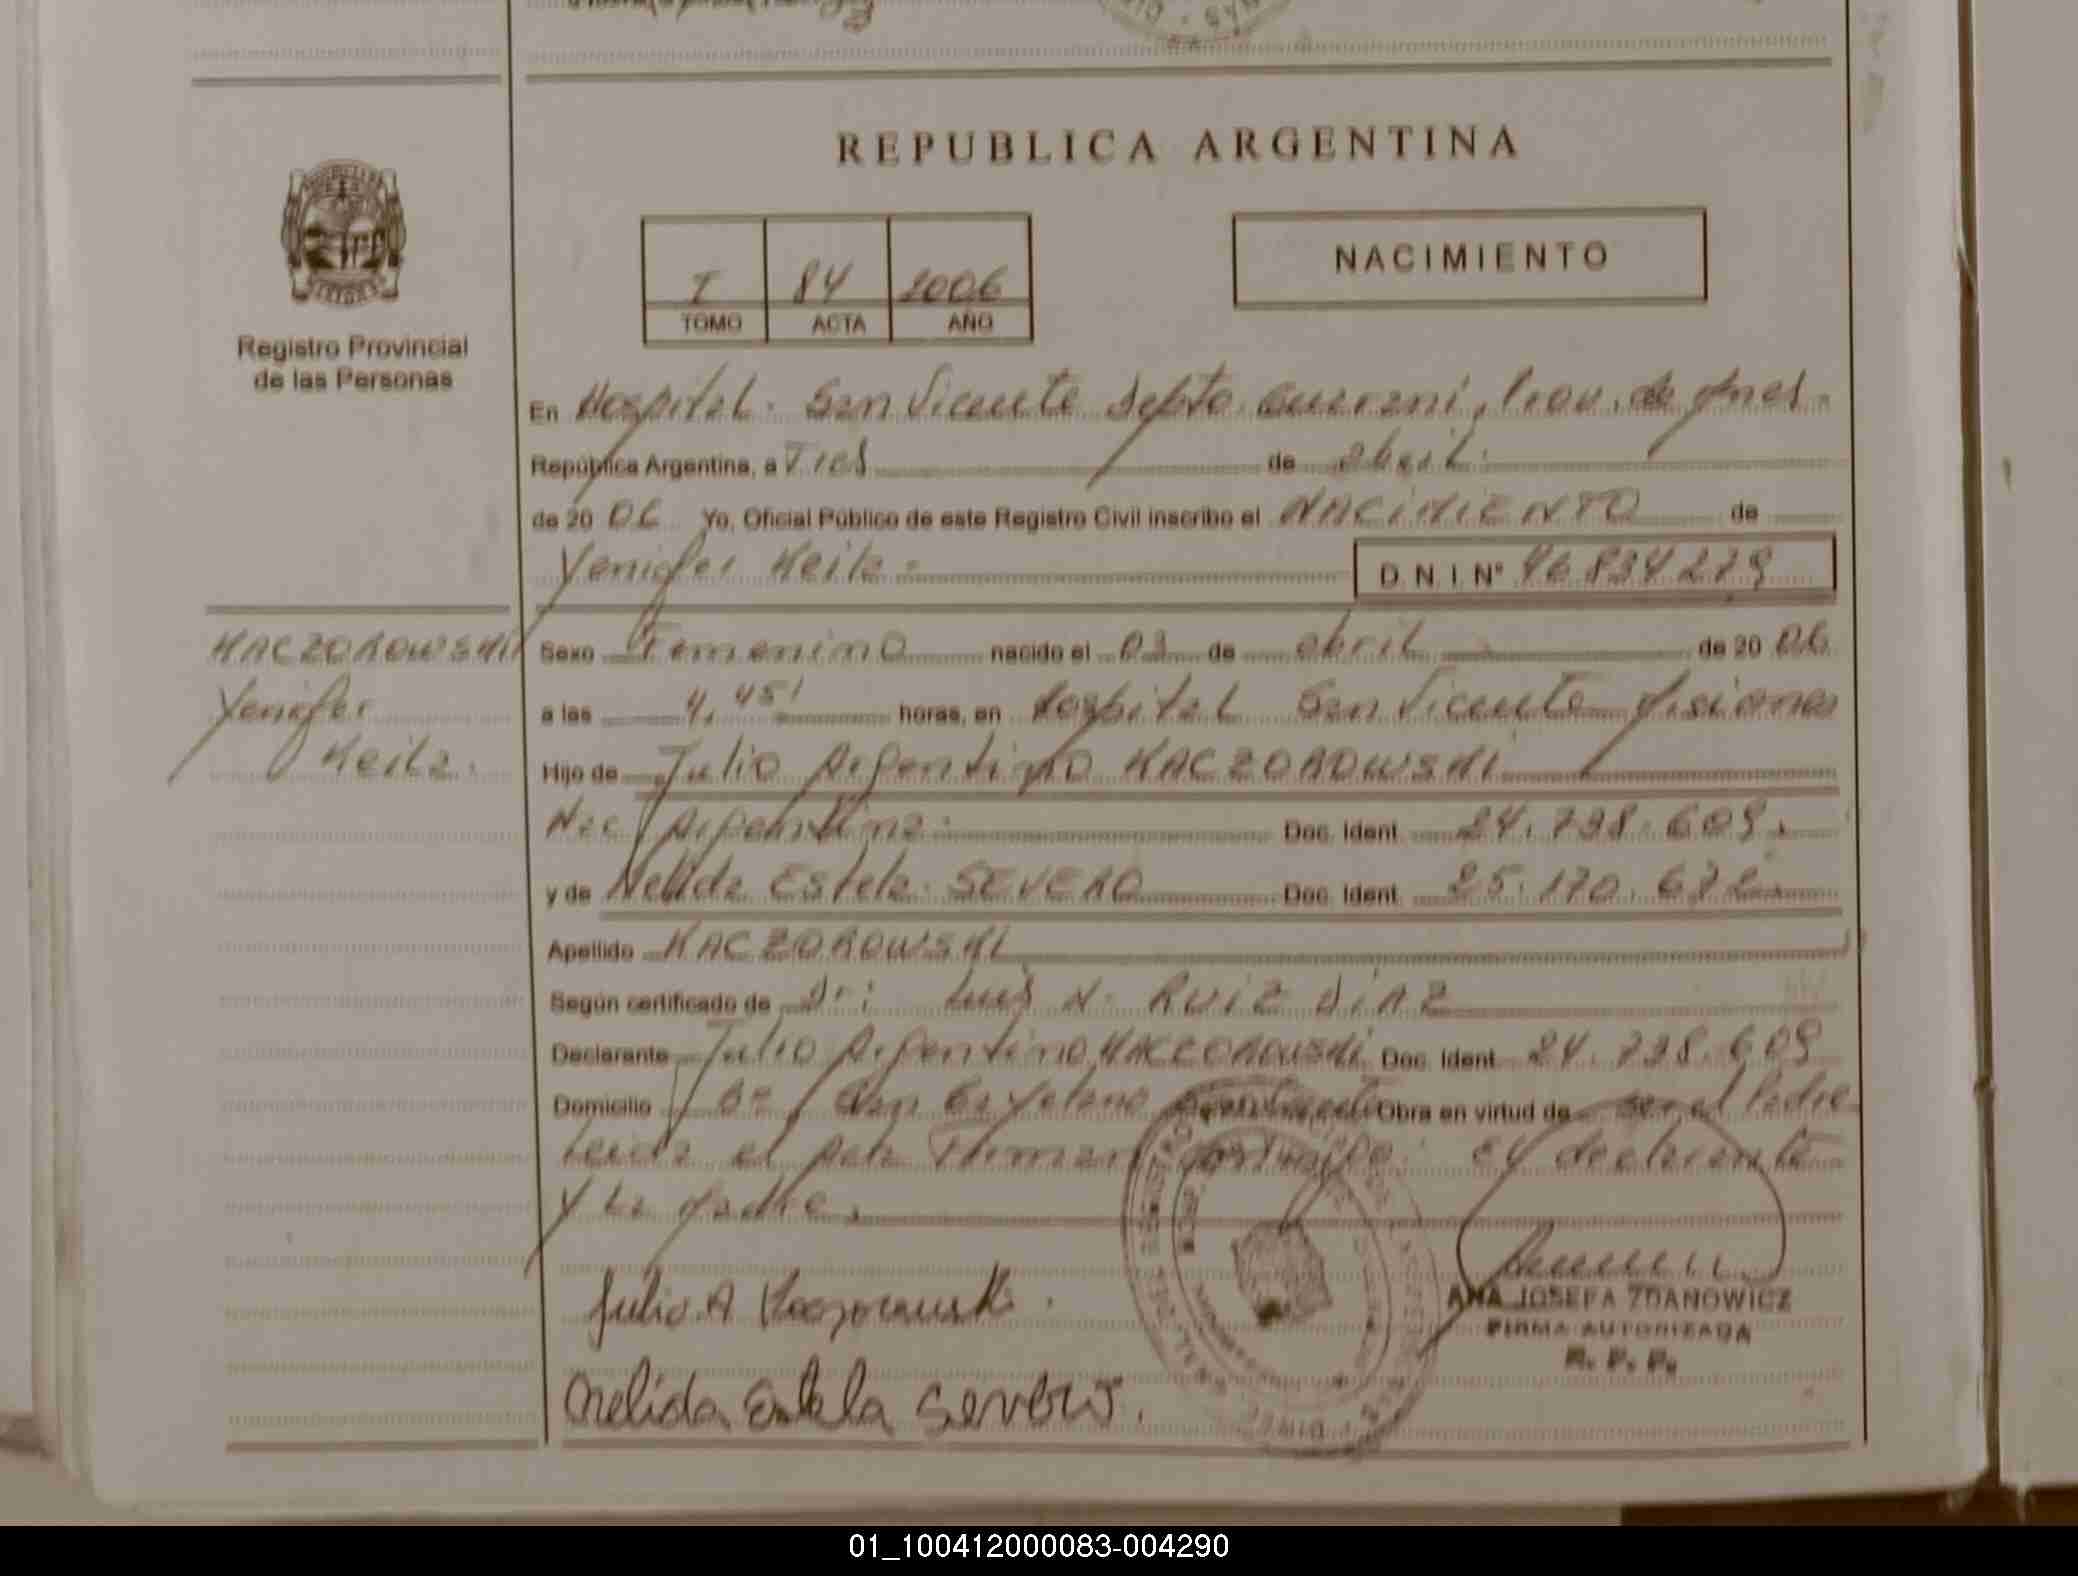 REPUBLICA ARGENTINA
I 84 2006
TOMO ACTA AÑO
NACIMIENTO
Registro Provincial
de las Personas
En Hospital San Vicente Depto Guarani, Prov. de Mnes.
República Argentina, a Tres de abril
de 20 06 Yo, Oficial Público de este Registro Civil inscribo el NACIMIENTO de
Yenifer Keila D. N. I. N° 46.834.279
KACZOROWSKI
Yenifer
Keila.
Sexo Femenino nacido el 03 de abril de 20 06
a las 4,45' horas, en Hospital San Vicente Misiones
Hijo de Julio Argentino KACZOROWSKI
Nac. Argentina Doc. Ident. 24.738.609
y de Nelida Estela SEVERO Doc. Ident. 25.170.672
Apellido KACZOROWSKI
Según certificado de Dr. Luis N. RUIZ DIAZ
Declarante Julio Argentino KACZOROWSKI Doc. Ident. 24.738.609
Domicilio Bº San Cayetano San Vicente Obra en virtud de ser el Padre
Leida el acta Firman conmigo: El declarante
y la Madre.
Julio A Kaczorowski.
Nelida Estela Severo.
ANA JOSEFA ZDANOWICZ
FIRMA AUTORIZADA
R. P. P.
01_100412000083-004290